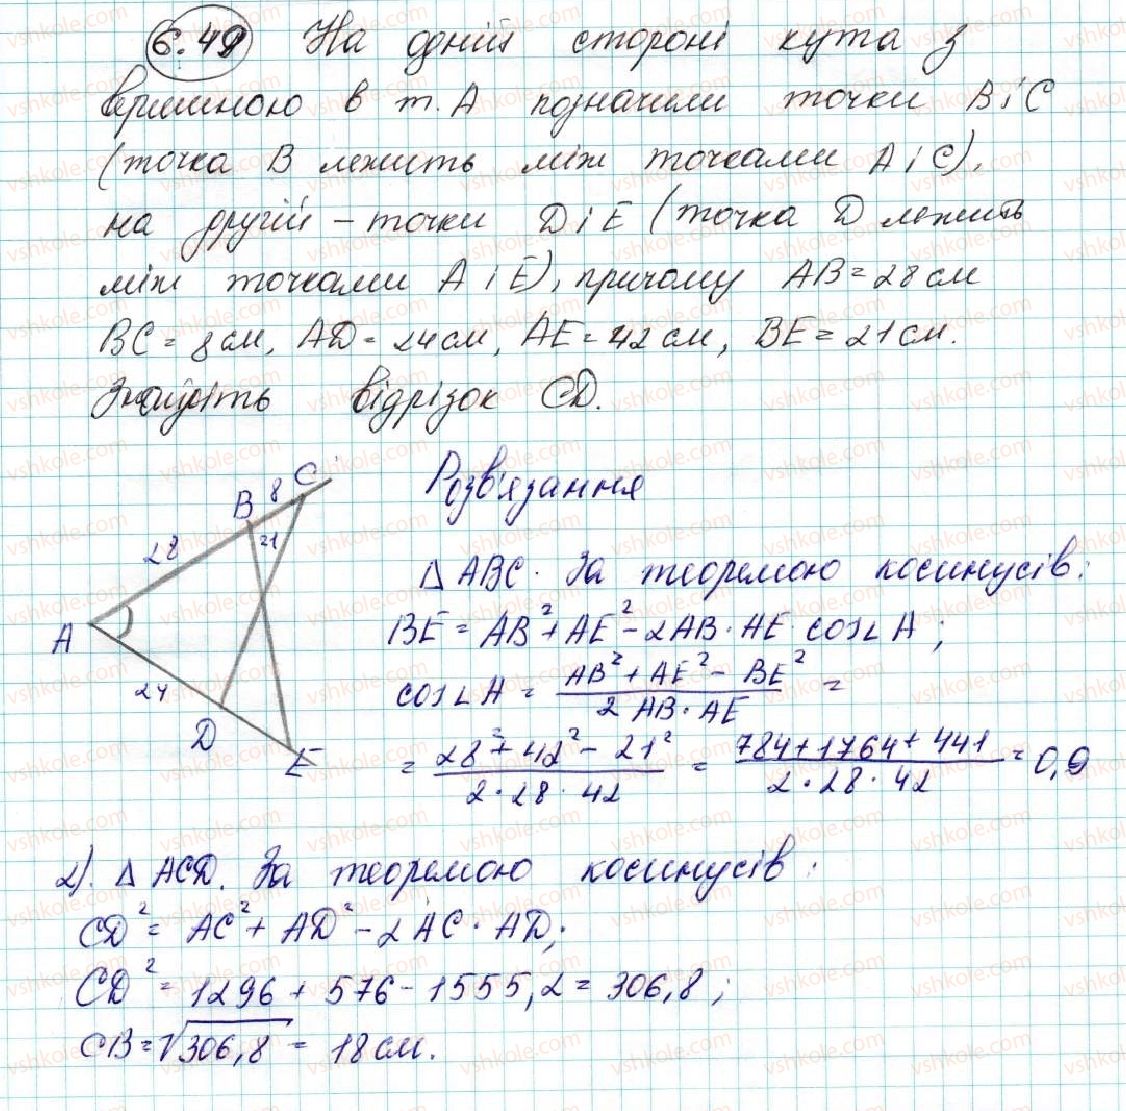 6.49 На одній стороні кута з
вершиною в т. А позначили точки В і С
(точка В лежить між точками А і С),
на другій – точки D і E (точка D лежить
між точками А і Е), причому АВ = 28 см
ВС = 8 см, AD = 24 см, АЕ = 42 см, ВЕ = 21 см.
Знайдіть відрізок CD.
Розв'язання
C
8
B
21
28
A
24
D
E
Δ АВС. За теоремою косинусів:
BE = AB² + AE² - 2AB · AE · cos∠A;
cos∠A = (AB² + AE² - BE²) / (2 AB · AE) =
= (28² + 42² - 21²) / (2 · 28 · 42) = (784 + 1764 + 441) / (2 · 28 · 42) = 0,9
2). Δ ACD. За теоремою косинусів:
CD² = AC² + AD² - 2AC · AD;
CD² = 1296 + 576 - 1555,2 = 306,8;
CB = √306,8 = 18 см.
vshkole.com